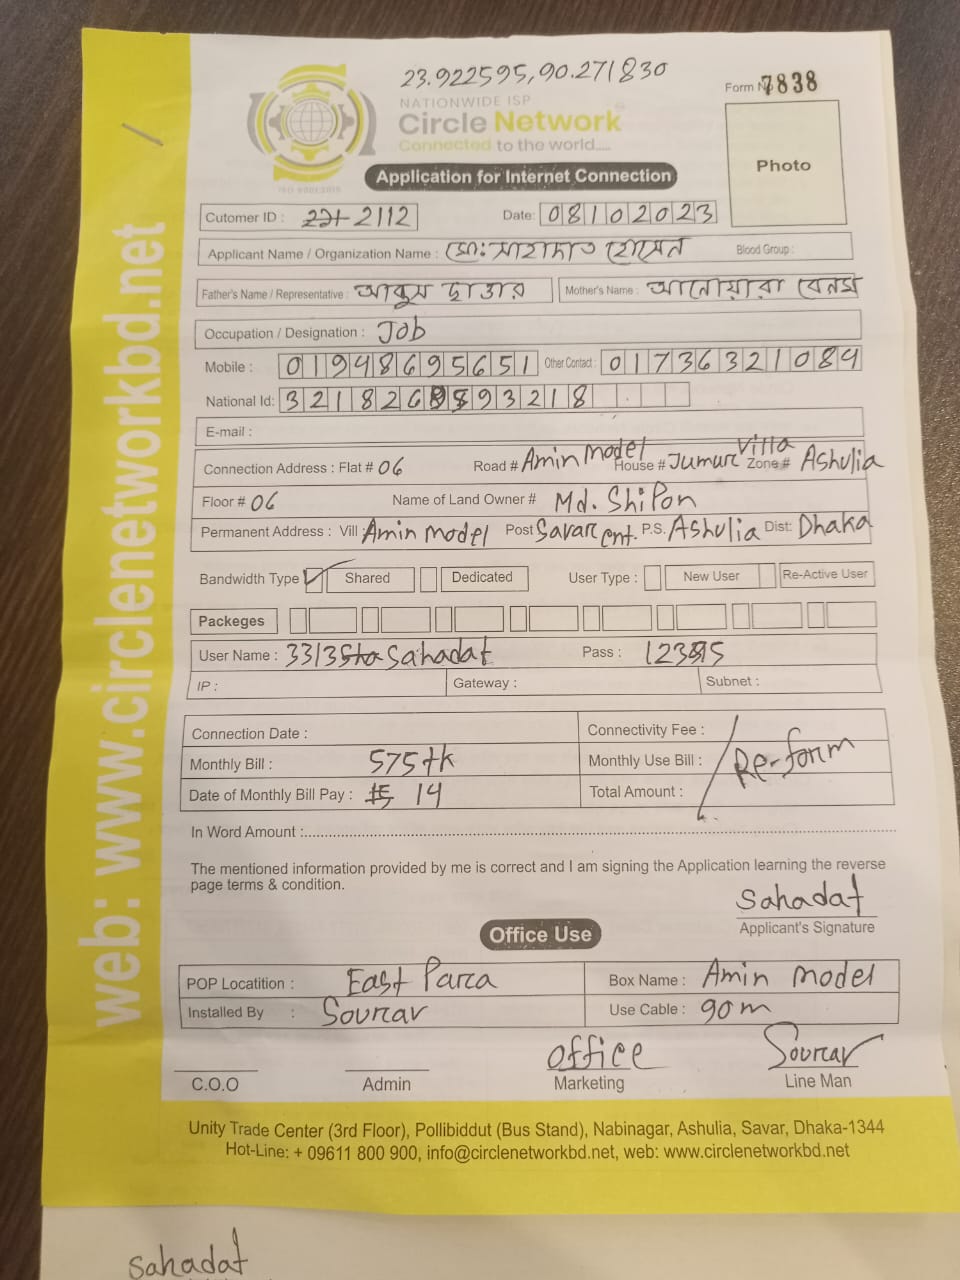 23.922595, 90.271830
Form No 7838
NATIONWIDE ISP
Circle Network
Connected to the world.....
ISO 9001:2015
Photo
Application for Internet Connection
Cutomer ID : 2112 Date: 08102023
Applicant Name / Organization Name : মোঃ সাহাদাত হোসেন Blood Group :
Father's Name / Representative : Mother's Name : আনোয়ারা বেগম
Occupation / Designation : Job
Mobile : 01948695651 Other Contact : 01736321084
National Id:
E-mail :
Connection Address : Flat # 06 Road # Amin Model House # Jumur Villa Zone # Ashulia
Floor # 06 Name of Land Owner # Md. Shipon
Permanent Address : Vill Amin model Post Savar cnt. P.S. Ashulia Dist: Dhaka
Bandwidth Type Shared Dedicated User Type : New User Re-Active User
Packeges
User Name : 3313 Sahadat Pass :
IP : Gateway : Subnet :
Connection Date : Connectivity Fee :
Monthly Bill : 575tk Monthly Use Bill : Re-form
Date of Monthly Bill Pay : 14 Total Amount :
In Word Amount :
The mentioned information provided by me is correct and I am signing the Application learning the reverse
page terms & condition.
Sahadat
Applicant's Signature
Office Use
POP Locatition : East Para Box Name : Amin model
Installed By : Sourav Use Cable : 90m
office Sourav
C.O.O Admin Marketing Line Man
Unity Trade Center (3rd Floor), Pollibiddut (Bus Stand), Nabinagar, Ashulia, Savar, Dhaka-1344
Hot-Line: + 09611 800 900, info@circlenetworkbd.net, web: www.circlenetworkbd.net
web: www.circlenetworkbd.net
Sahadat